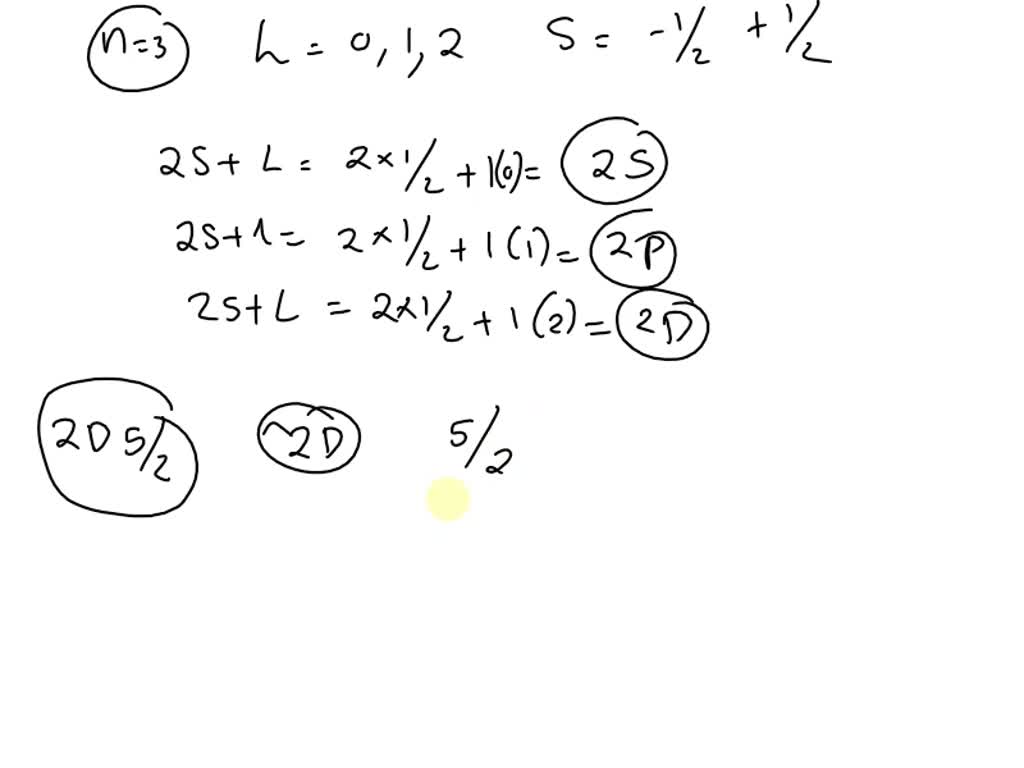 n=3 L = 0, 1, 2 S = -1/2 + 1/2
2S + L = 2×1/2 + 1(0) = 2S
2S+1 = 2×1/2 + 1(1) = 2P
2S+L = 2×1/2 + 1(2) = 2D
2D 5/2 2D 5/2